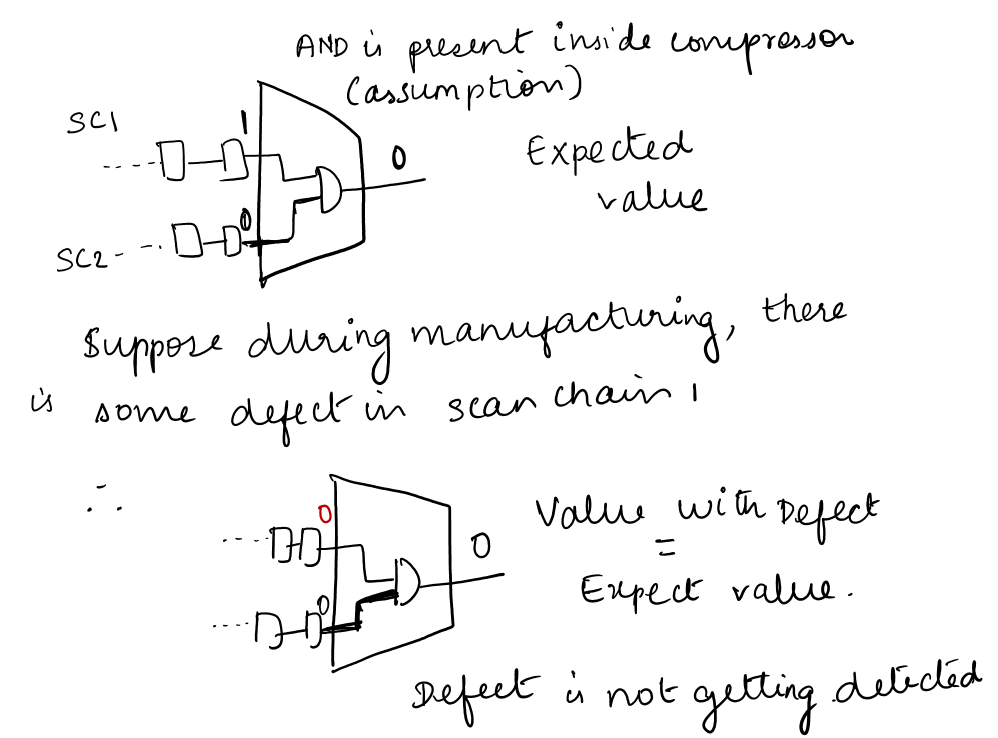 AND is present inside compressor
(assumption)
SC1
1
0
Expected
value
0
SC2
Suppose during manufacturing, there
is some defect in scan chain 1
∴
0
0
Value with Defect
=
Expect value.
0
Defect is not getting detected